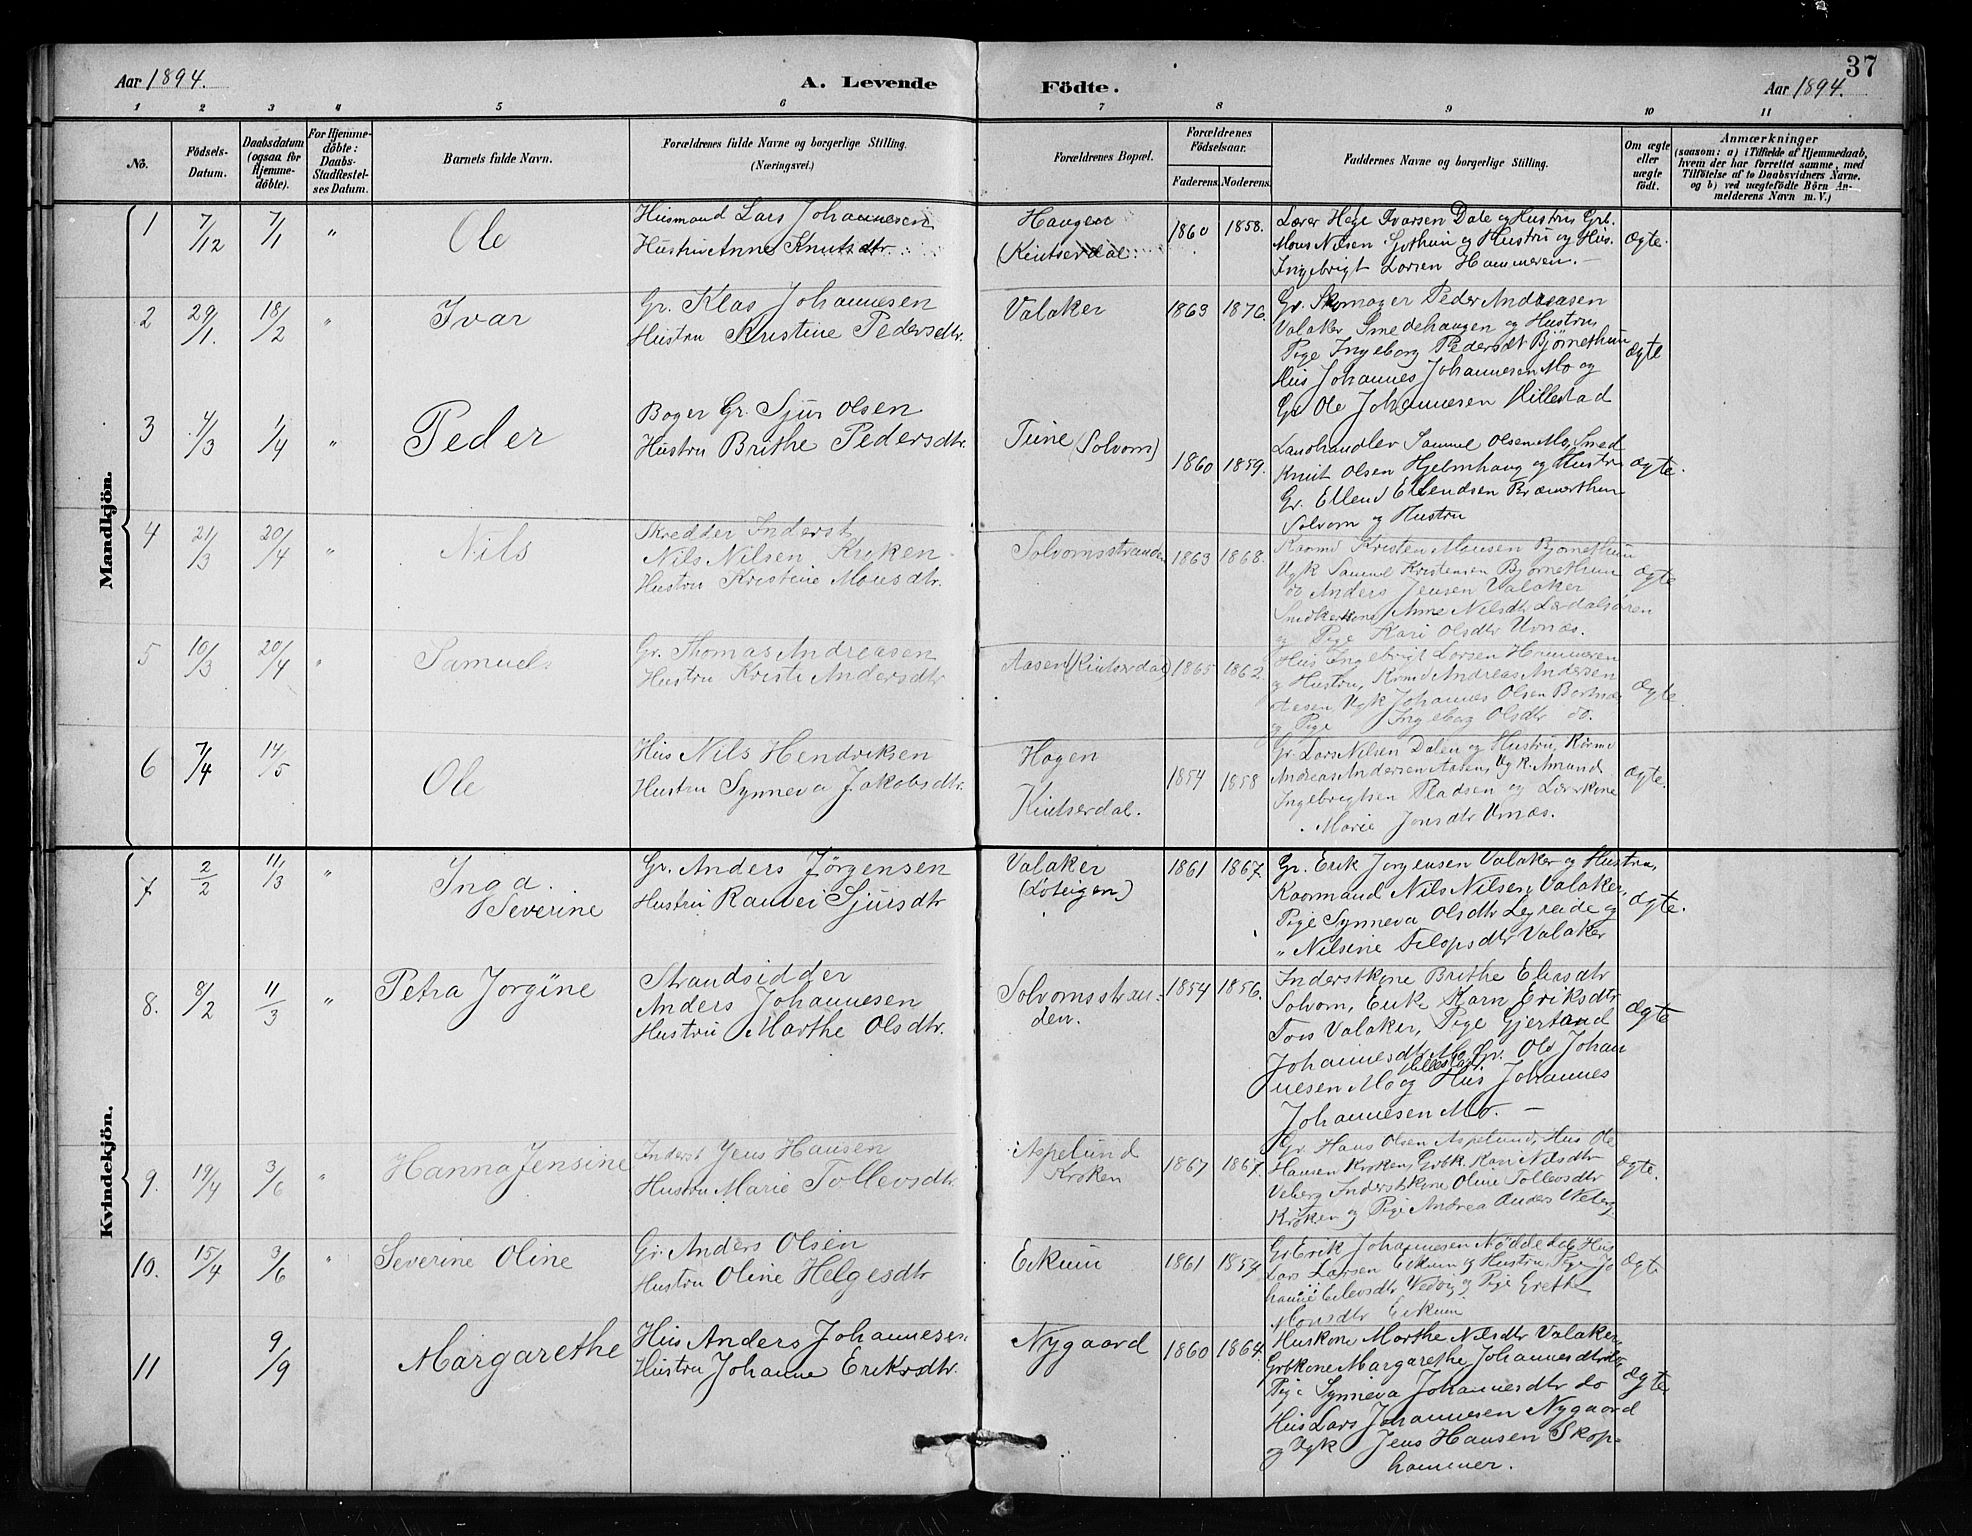 37
Aar 1894. A. Levende Födte. Aar 1894.
1 2 3 4 5 6 7 8 9 10 11
No.
Födsels-
Datum.
Daabsdatum
(ogsaa for
Hjemme-
döbte).
For Hjemme-
döbte:
Daabs-
Stadfæstel-
ses Datum.
Barnets fulde Navn.
Forældrenes fulde Navne og borgerlige Stilling.
(Næringsvei.)
Forældrenes Bopæl.
Forældrenes
Födselsaar.
Faderens. Moderens.
Faddernes Navne og borgerlige Stilling.
Om ægte
eller
uægte
födt.
Anmærkninger
(saasom: a) i Tilfælde af Hjemmedaab,
hvem der har forrettet samme, med
Tilföielse af to Daabsvidners Navne.
og b) ved uægtefödte Börn An-
melderens Navn m. V.)
Mandkjön.
1 7/12 7/1 " Ole
Husmand Lars Johannesen
Hustru Anne Knutsdtr.
Haugen
(Kintserdal
1860 1858.
Lærer Helge Ivarsen Dale og Hustru, Grb.
Mons Nilsen Gothun og Hustru og Hus.
Ingebrigt Larsen Hammeren. –
Ægte.
2 29/1. 18/2 " Ivar
Gr. Klas Johannesen
Hustru Kristine Pedersdtr.
Valaker
1863 1876.
Gr. Skomager Peder Andreasen
Valaker Smedehaugen og Hustru,
Pige Ingeborg Pedersdt Bjørnethun
Hus Johannes Johannesen Mo og
Gr. Ole Johannesen Hillestad
Ægte
3 4/3 1/4 " Peder
Bager Gr. Sjur Olsen
Hustru Brithe Pedersdtr.
Tune (Solvorn)
1860 1859.
Landhandler Samuel Olsen Mo, Smed
Knut Olsen Hjelmhaug og Hustru
Gr. Ellend Ellendsen
Solvorn og Hustru
Ægte.
4 21/3 20/4 " Nils
Skredder Inderst
Nils Nilsen Kroken
Hustru Kristine Monsdtr.
Solvornsstranden
1863 1868.
Kaarmd Kristen Monsen Bjørnethun
Ugk Samuel Kristensen Bjørnethun
do Anders Jensen Valaker
Snedkerkone Anne Nilsdtr Lærdalsøren
og Pige Kari Olsdtr Urnæs.
Ægte
5 10/3 20/4 " Samuel
Gr. Thomas Andreasen
Hustru Kristi Andersdtr
Aasen (Kintserdal)
1865 1862.
Hus Ingebrigt Larsen Hammeren
og Hustru, Krmd Andreas Andersen
Aasen, Ugk Johannes Olsen
og Pige Ingeborg Olsdtr do.
Ægte.
6 7/4 14/5 Ole
Hus Nils Hendriksen
Hustru Synneva Jakobsdtr.
Hagen
Kintserdal.
1854 1858
Gr. Lars Nilsen Dalen og Hustru, Kårmd
Andreas Andersen Aasen, Ugk. Amund
Ingebrigtsen Pladsen og Lærerkone
Marie Jonsdtr Urnæs.
Ægte.
Kvindekjön.
7 2/2 11/3 " Inga.
Severine
Gr. Anders Jørgensen
Hustru Ranvei Sjursdtr
Valaker
(Loteigen)
1861 1867.
Gr. Erik Jørgensen Valaker og Hustru,
Kaarmand Nils Nilsen Valaker,
Pige Synneva Olsdtr Legreide og
" Nilsine Filopsdtr Valaker
Ægte.
8. 8/2 11/3 " Petra Jorgine
Strandsidder
Anders Johannesen
Hustru Marthe Olsdtr.
Solvornsstran-
den.
1854 1856.
Inderstkone Brithe Eliasdtr
Solvorn, Enke Karn Eriksdtr
Valaker, Pige Gjertand
Johannesdtr Mo, Gr. Ole Johan
Hillestad
nesen Mo og Hus Johannes
Johannesen Mo. –
Ægte
9. 19/4 3/6 " Hanna Jensine
Inderst Jens Hansen
Hustru Marie Tollevsdtr.
Aspelund
Kroken
1867 1867.
Gr. Hans Olsen Aspelund, Hus Ole
Hansen Kroken, Grbk. Kari Nilsdtr
Veberg Inderstkone Oline Tollevsdtr
Kroken og Pige Andrea Anders Veberg
Ægte.
10. 15/4 3/6 " Severine Oline
Gr. Anders Olsen
Hustru Oline Helgesdtr
Eikum
1861 1854
Gr Erik Johannesen Hus
Lars Larsen Eikum og Hustru, Pige Jo
hanne Eilevsdtr og Pige Grethe
Monsdtr Eikum
Ægte
11 9/9 Margarethe
Hus Anders Johannesen
Hustru Johanne Eriksdtr.
Nygaard
1860 1864.
Huskone Marthe Nilsdtr Valaker,
Grbkone Margarethe Johannesdtr do,
Pige Synneva Johannesdtr do
Hus Lars Johannesen Nygaard
og Ugk Jens Hansen Skop-
hammer.
Ægte.